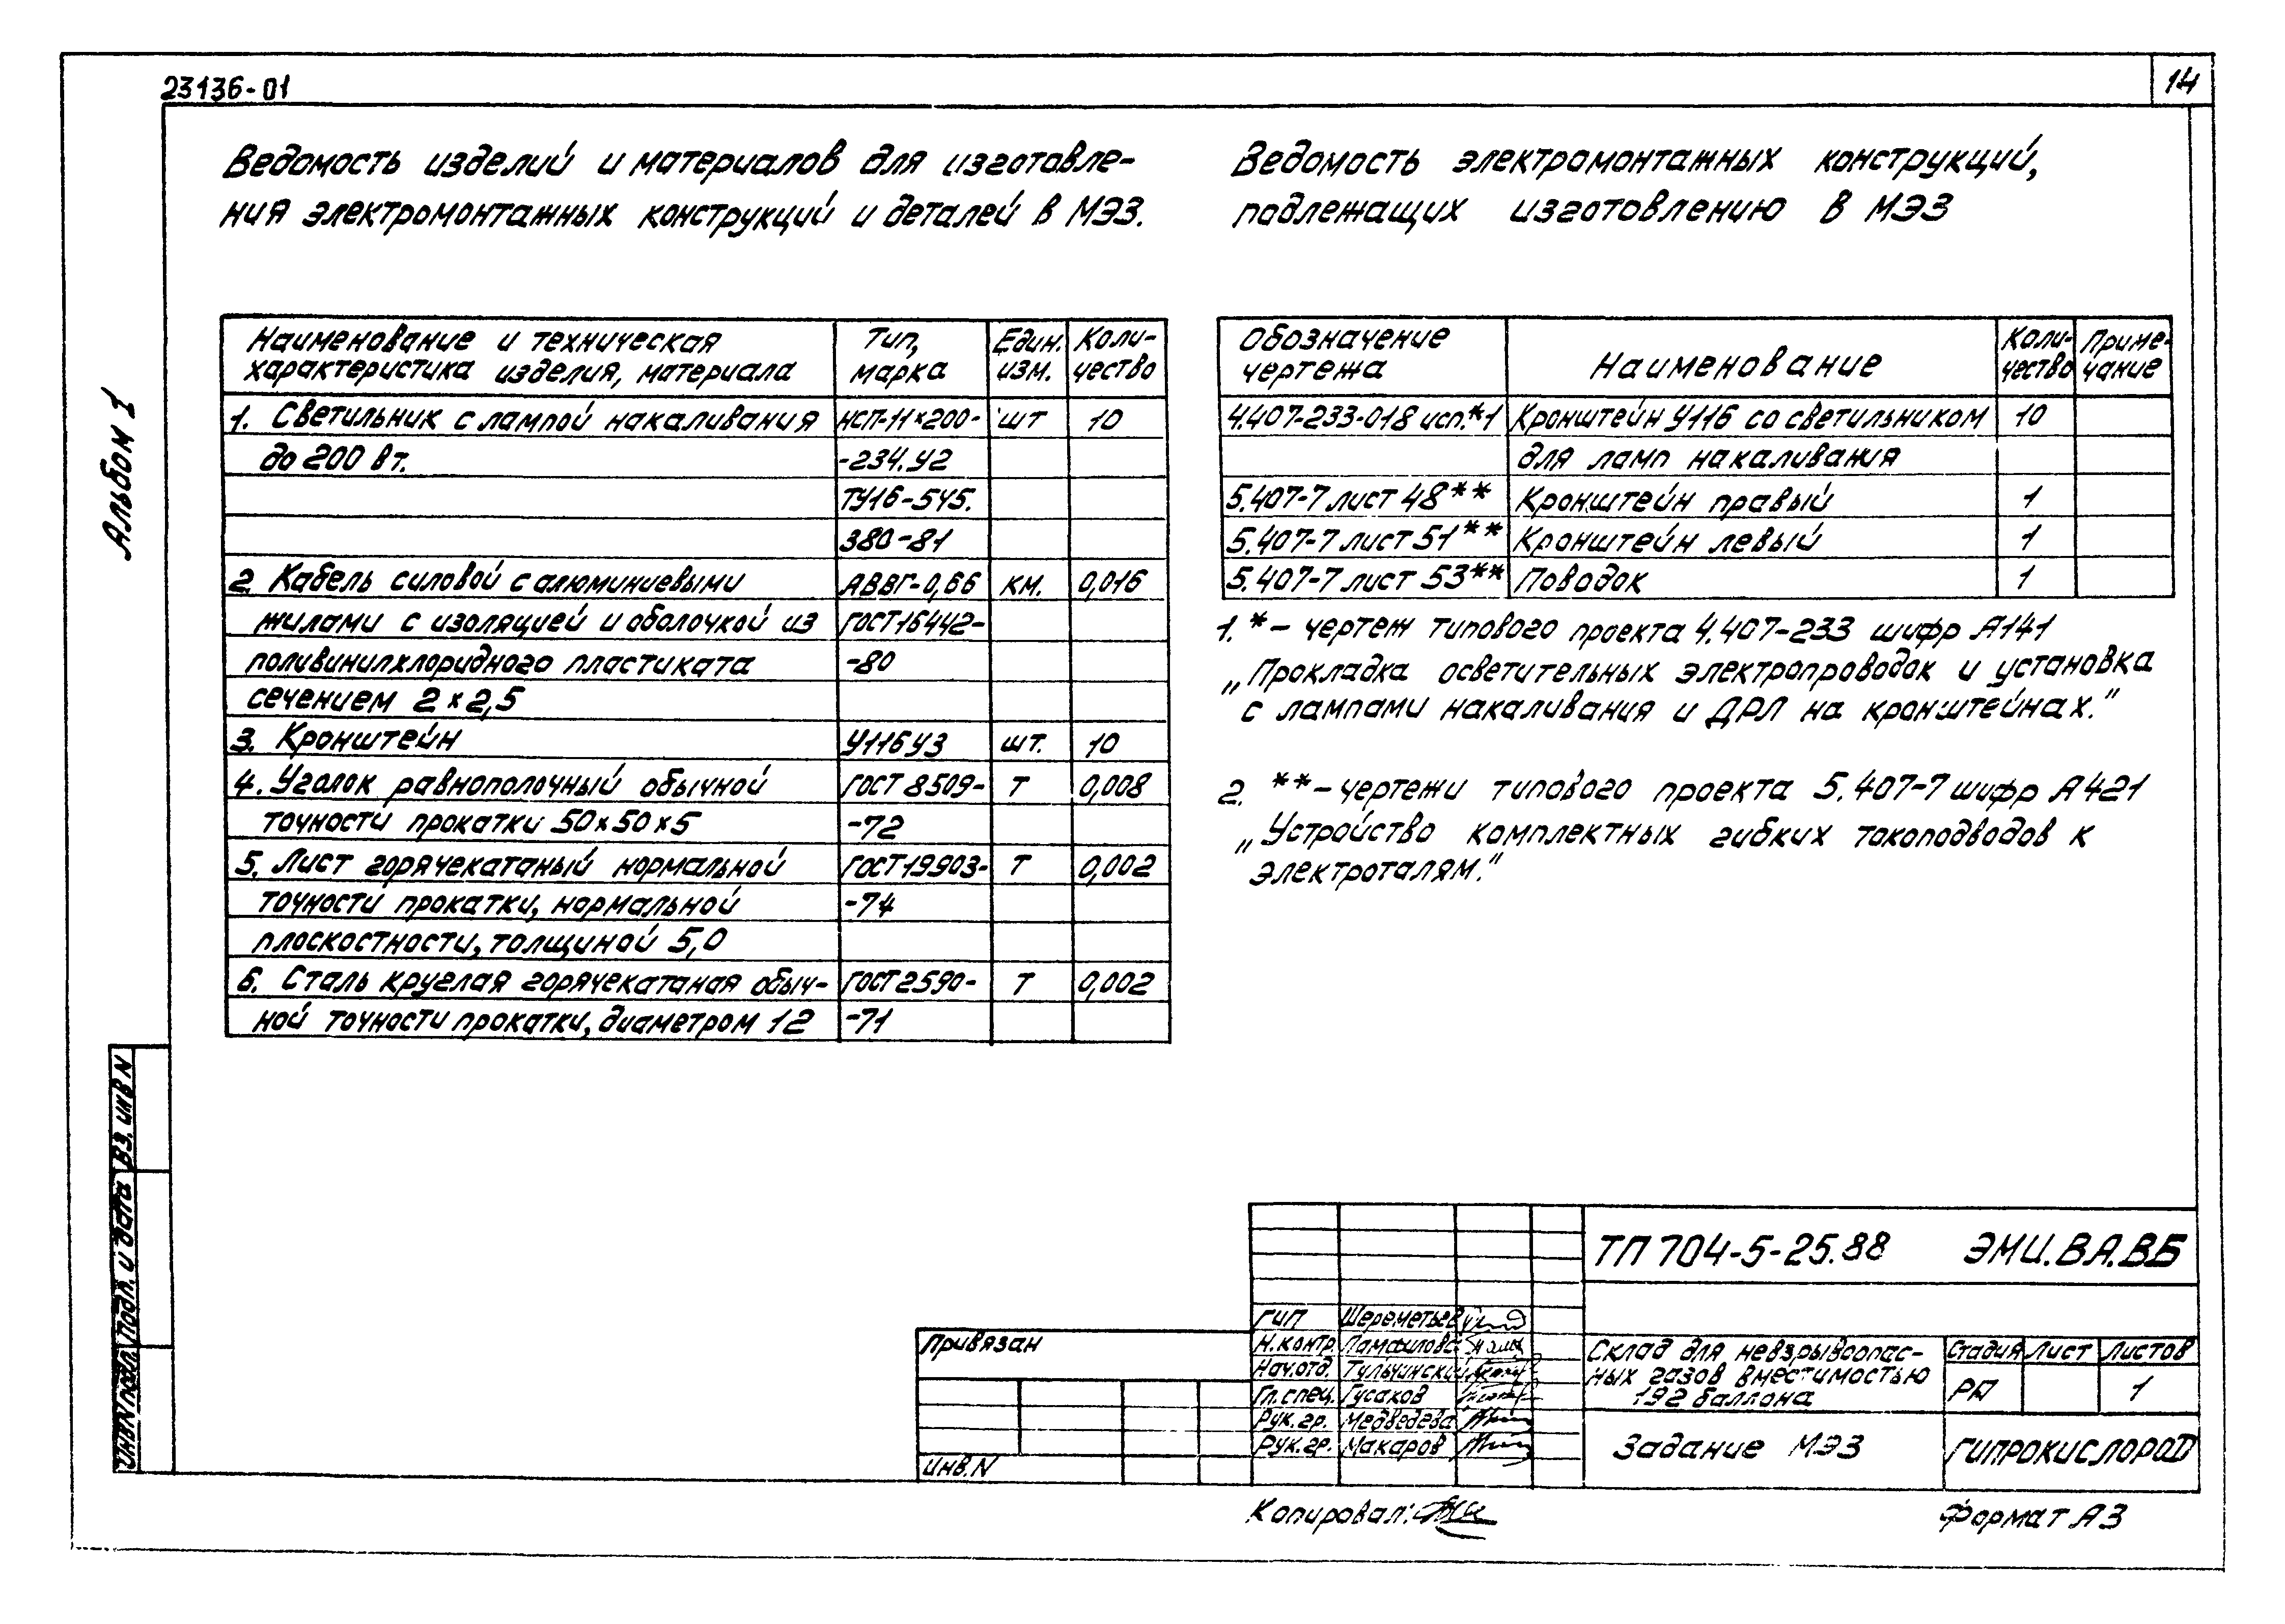 23136-01
14
Альбом I
Ведомость изделий и материалов для изготовле-
ния электромонтажных конструкций и деталей в МЭЗ.
Наименование и техническая характеристика изделия, материала | Тип, марка | Един. изм. | Коли-чество
1. Светильник с лампой накаливания | НСП-11×200- | шт | 10
до 200 вт. | -234.У2
ТУ16-545.
380-81
2. Кабель силовой с алюминиевыми | АВВГ-0,66 | км. | 0,016
жилами с изоляцией и оболочкой из | ГОСТ16442-
поливинилхлоридного пластиката | -80
сечением 2×2,5
3. Кронштейн | У116У3 | шт. | 10
4. Уголок равнополочный обычной | ГОСТ 8509- | Т | 0,008
точности прокатки 50×50×5 | -72
5. Лист горячекатаный нормальной | ГОСТ19903- | Т | 0,002
точности прокатки, нормальной | -74
плоскостности, толщиной 5,0
6. Сталь круглая горячекатаная обыч- | ГОСТ2590- | Т | 0,002
ной точности прокатки, диаметром 12 | -71
Ведомость электромонтажных конструкций,
подлежащих изготовлению в МЭЗ
Обозначение чертежа | Наименование | Коли-чество | Приме-чание
4.407-233-018 исп.*1 | Кронштейн У116 со светильником | 10
для ламп накаливания
5.407-7 лист 48** | Кронштейн правый | 1
5.407-7 лист 51** | Кронштейн левый | 1
5.407-7 лист 53** | Поводок | 1
1. *- чертеж типового проекта 4.407-233 шифр А141
„Прокладка осветительных электропроводок и установка
с лампами накаливания и ДРЛ на кронштейнах."
2. **-чертежи типового проекта 5.407-7 шифр А421
„Устройство комплектных гибких токоподводов к
электроталям."
Инв N подл. Подп. и дата Вз. инв N
Привязан
Инв. N
ГИП Шереметьев
Н.контр. Памфилова
Нач.отд. Тульчинский
Гл.спец. Гусаков
Рук.гр. Медведева
Рук.гр. Макаров
ТП 704-5-25.88 ЭМИ.ВА.ВБ
Склад для невзрывоопас-
ных газов вместимостью
192 баллона
Стадия Лист Листов
РП 1
Задание МЭЗ
ГИПРОКИСЛОРОД
Копировал:
Формат А3